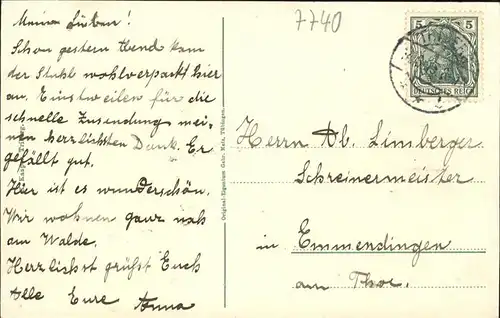 7740
Meine Lieben!
Schon gestern Abend kam
der Stuhl wohlverpackt hier
an. Einstweilen für die
schnelle Zusendung mei-
nen herzlichsten Dank. Er
gefällt gut.
Hier ist es wunderschön.
Wir wohnen ganz nah
am Walde.
Herzlichst grüßt Euch
Alle Eure Anna
Original-Eigentum Gebr. Metz, Tübingen.
5 5
DEUTSCHES REICH
Herrn Ab. Limberger
Schreinermeister
in Emmendingen
am Thor